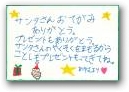 サンタさん おてがみ
ありがとう。
プレゼントもありがとう。
サンタさんのやくそくをまもるから
ことしもプレゼントもってきてね。